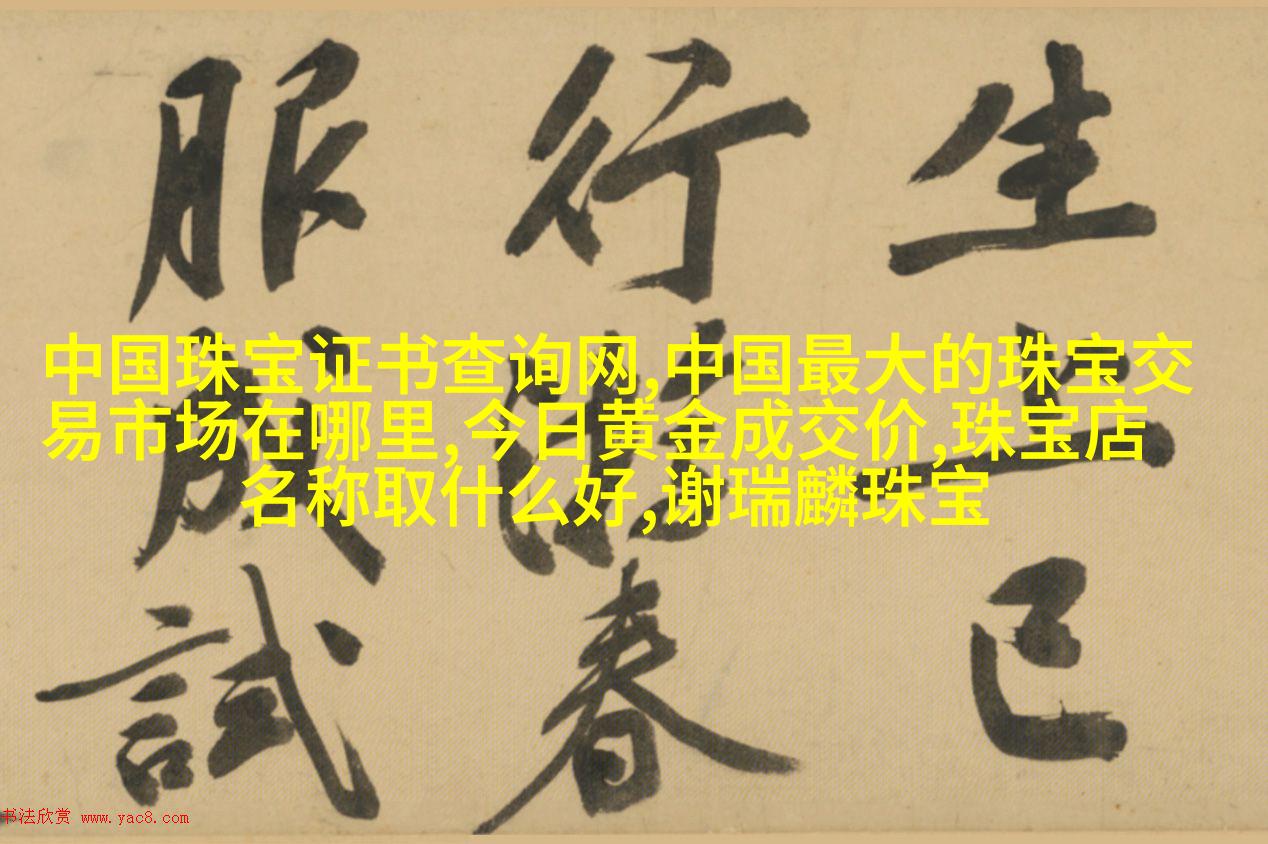 生上巳
行春
服成試
中国珠宝证书查询网,中国最大的珠宝交
易市场在哪里,今日黄金成交价,珠宝店
名称取什么好,谢瑞麟珠宝
书法欣赏 www.yac8.com